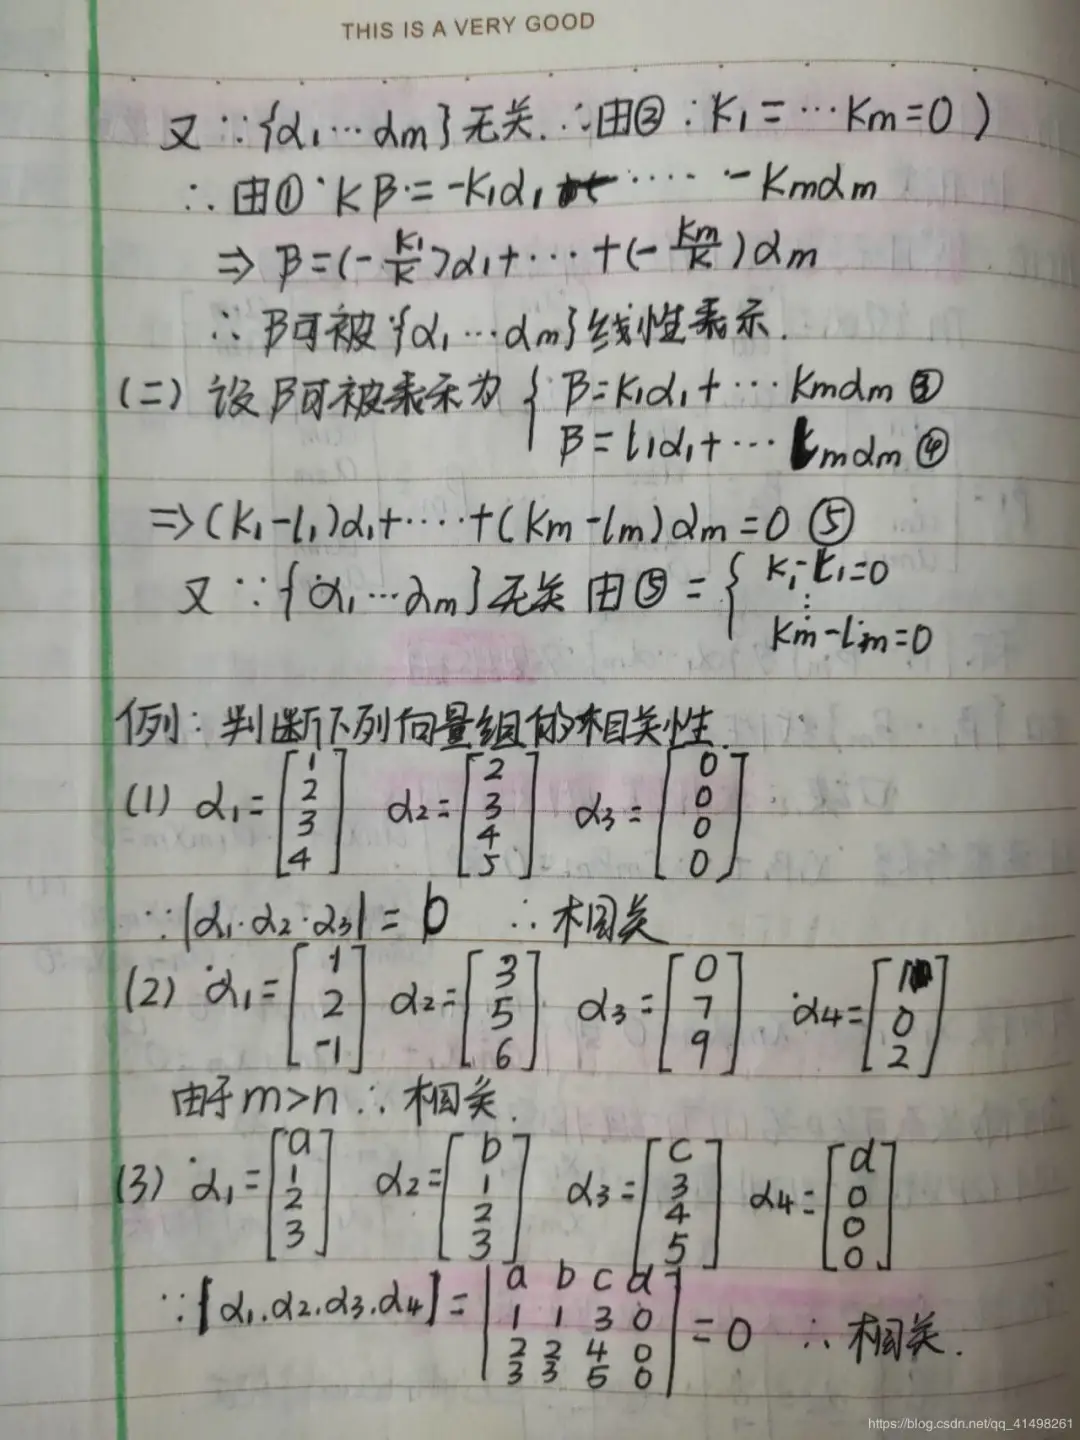 THIS IS A VERY GOOD
又∵{α₁…αm}无关.∴由②:K₁=…Km=0)
∴由① Kβ=-K₁α₁ …… -Kmαm
⇒ β=(-K₁/K)α₁+…+(-Km/K)αm
∴β可被{α₁…αm}线性表示.
(二) 设β可被表示为 { β=K₁α₁+…Kmαm ③
β=l₁α₁+…lmαm ④
⇒(K₁-l₁)α₁+……+(Km-lm)αm=0 ⑤
又∵{α₁…αm}无关 由⑤={ K₁-l₁=0
⋮
Km-lm=0
例:判断下列向量组的相关性.
(1) α₁=[1 2 3 4] α₂=[2 3 4 5] α₃=[0 0 0 0]
∵|α₁.α₂.α₃|=0 ∴相关
(2) α₁=[1 2 -1] α₂=[3 5 6] α₃=[0 7 9] α₄=[1 0 2]
由于m>n∴相关.
(3) α₁=[a 1 2 3] α₂=[b 1 2 3] α₃=[c 3 4 5] α₄=[d 0 0 0]
∵|α₁.α₂.α₃.α₄|=|a b c d
1 1 3 0
2 2 4 0
3 3 5 0|=0 ∴相关.
https://blog.csdn.net/qq_41498261